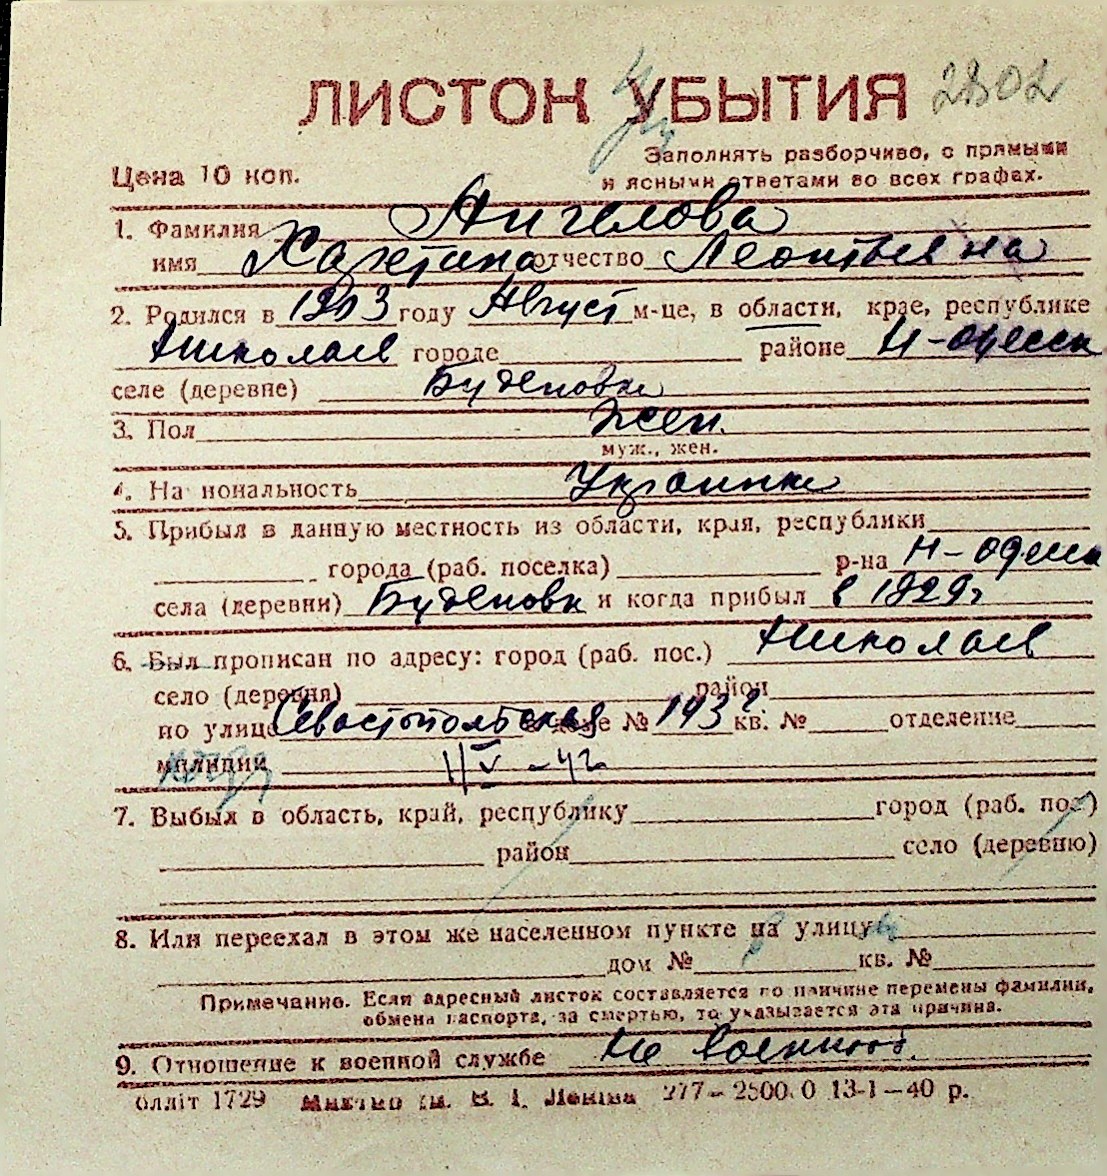 ЛИСТОК УБЫТИЯ 2802
Заполнять разборчиво, с прямыми
Цена 10 коп. и ясными ответами во всех графах.
1. Фамилия Ангелова
имя Харетина отчество Леонтьевна
2. Родился в 1903 году Август м-це, в области, крае, республике
Николаев городе районе Н-Одесск
селе (деревне) Буденовка
3. Пол Жен.
муж., жен.
4. Национальность Украинка
5. Прибыл в данную местность из области, края, республики
города (раб. поселка) р-на Н-Одесск
села (деревни) Буденовк и когда прибыл в 1929г
6. Был прописан по адресу: город (раб. пос.) Николаев
село (деревня) район
по улице Севастопольская доме № 193 кв. № отделение
милиции 11/V-42
7. Выбыл в область, край, республику город (раб. пос.)
район село (деревню)
8. Или переехал в этом же населенном пункте на улицу
дом № кв. №
Примечание. Если адресный листок составляется по причине перемены фамилии,
обмена паспорта, за смертью, то указывается эта причина.
9. Отношение к военной службе Не военнооб.
блліт 1729 ім. В. І. Леніна 277–2500.0 13-1–40 р.